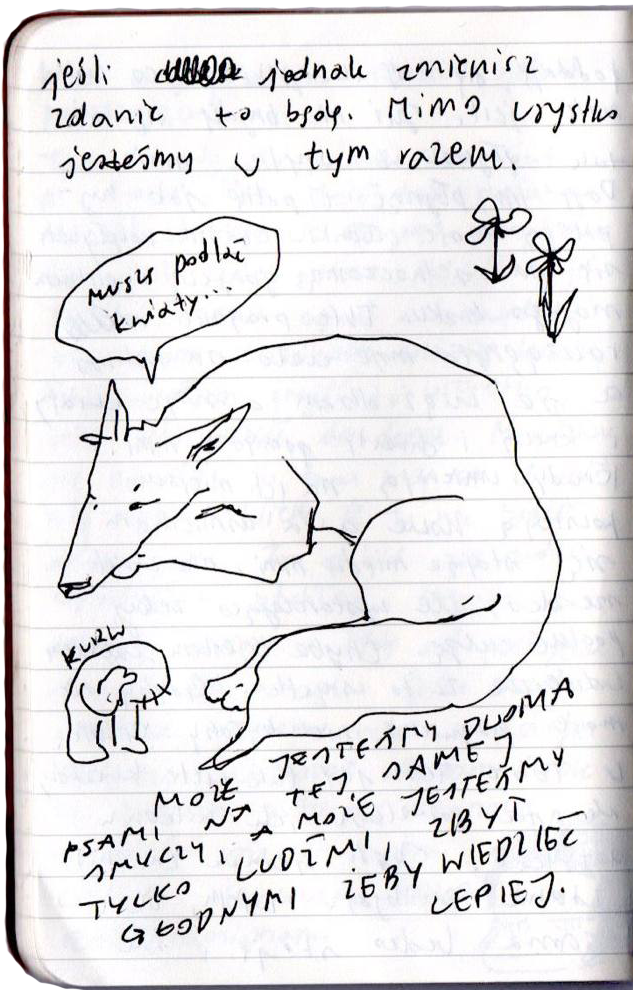 jeśli jednak zmienisz
zdanie to będę. Mimo wszystko
jesteśmy w tym razem.
muszę podlać
kwiaty...
KURW
MOŻE JESTEŚMY DWOMA
PSAMI NA TEJ SAMEJ
SMYCZY A MOŻE JESTEŚMY
TYLKO LUDŹMI, ZBYT
GŁODNYMI ŻEBY WIEDZIEĆ
LEPIEJ.